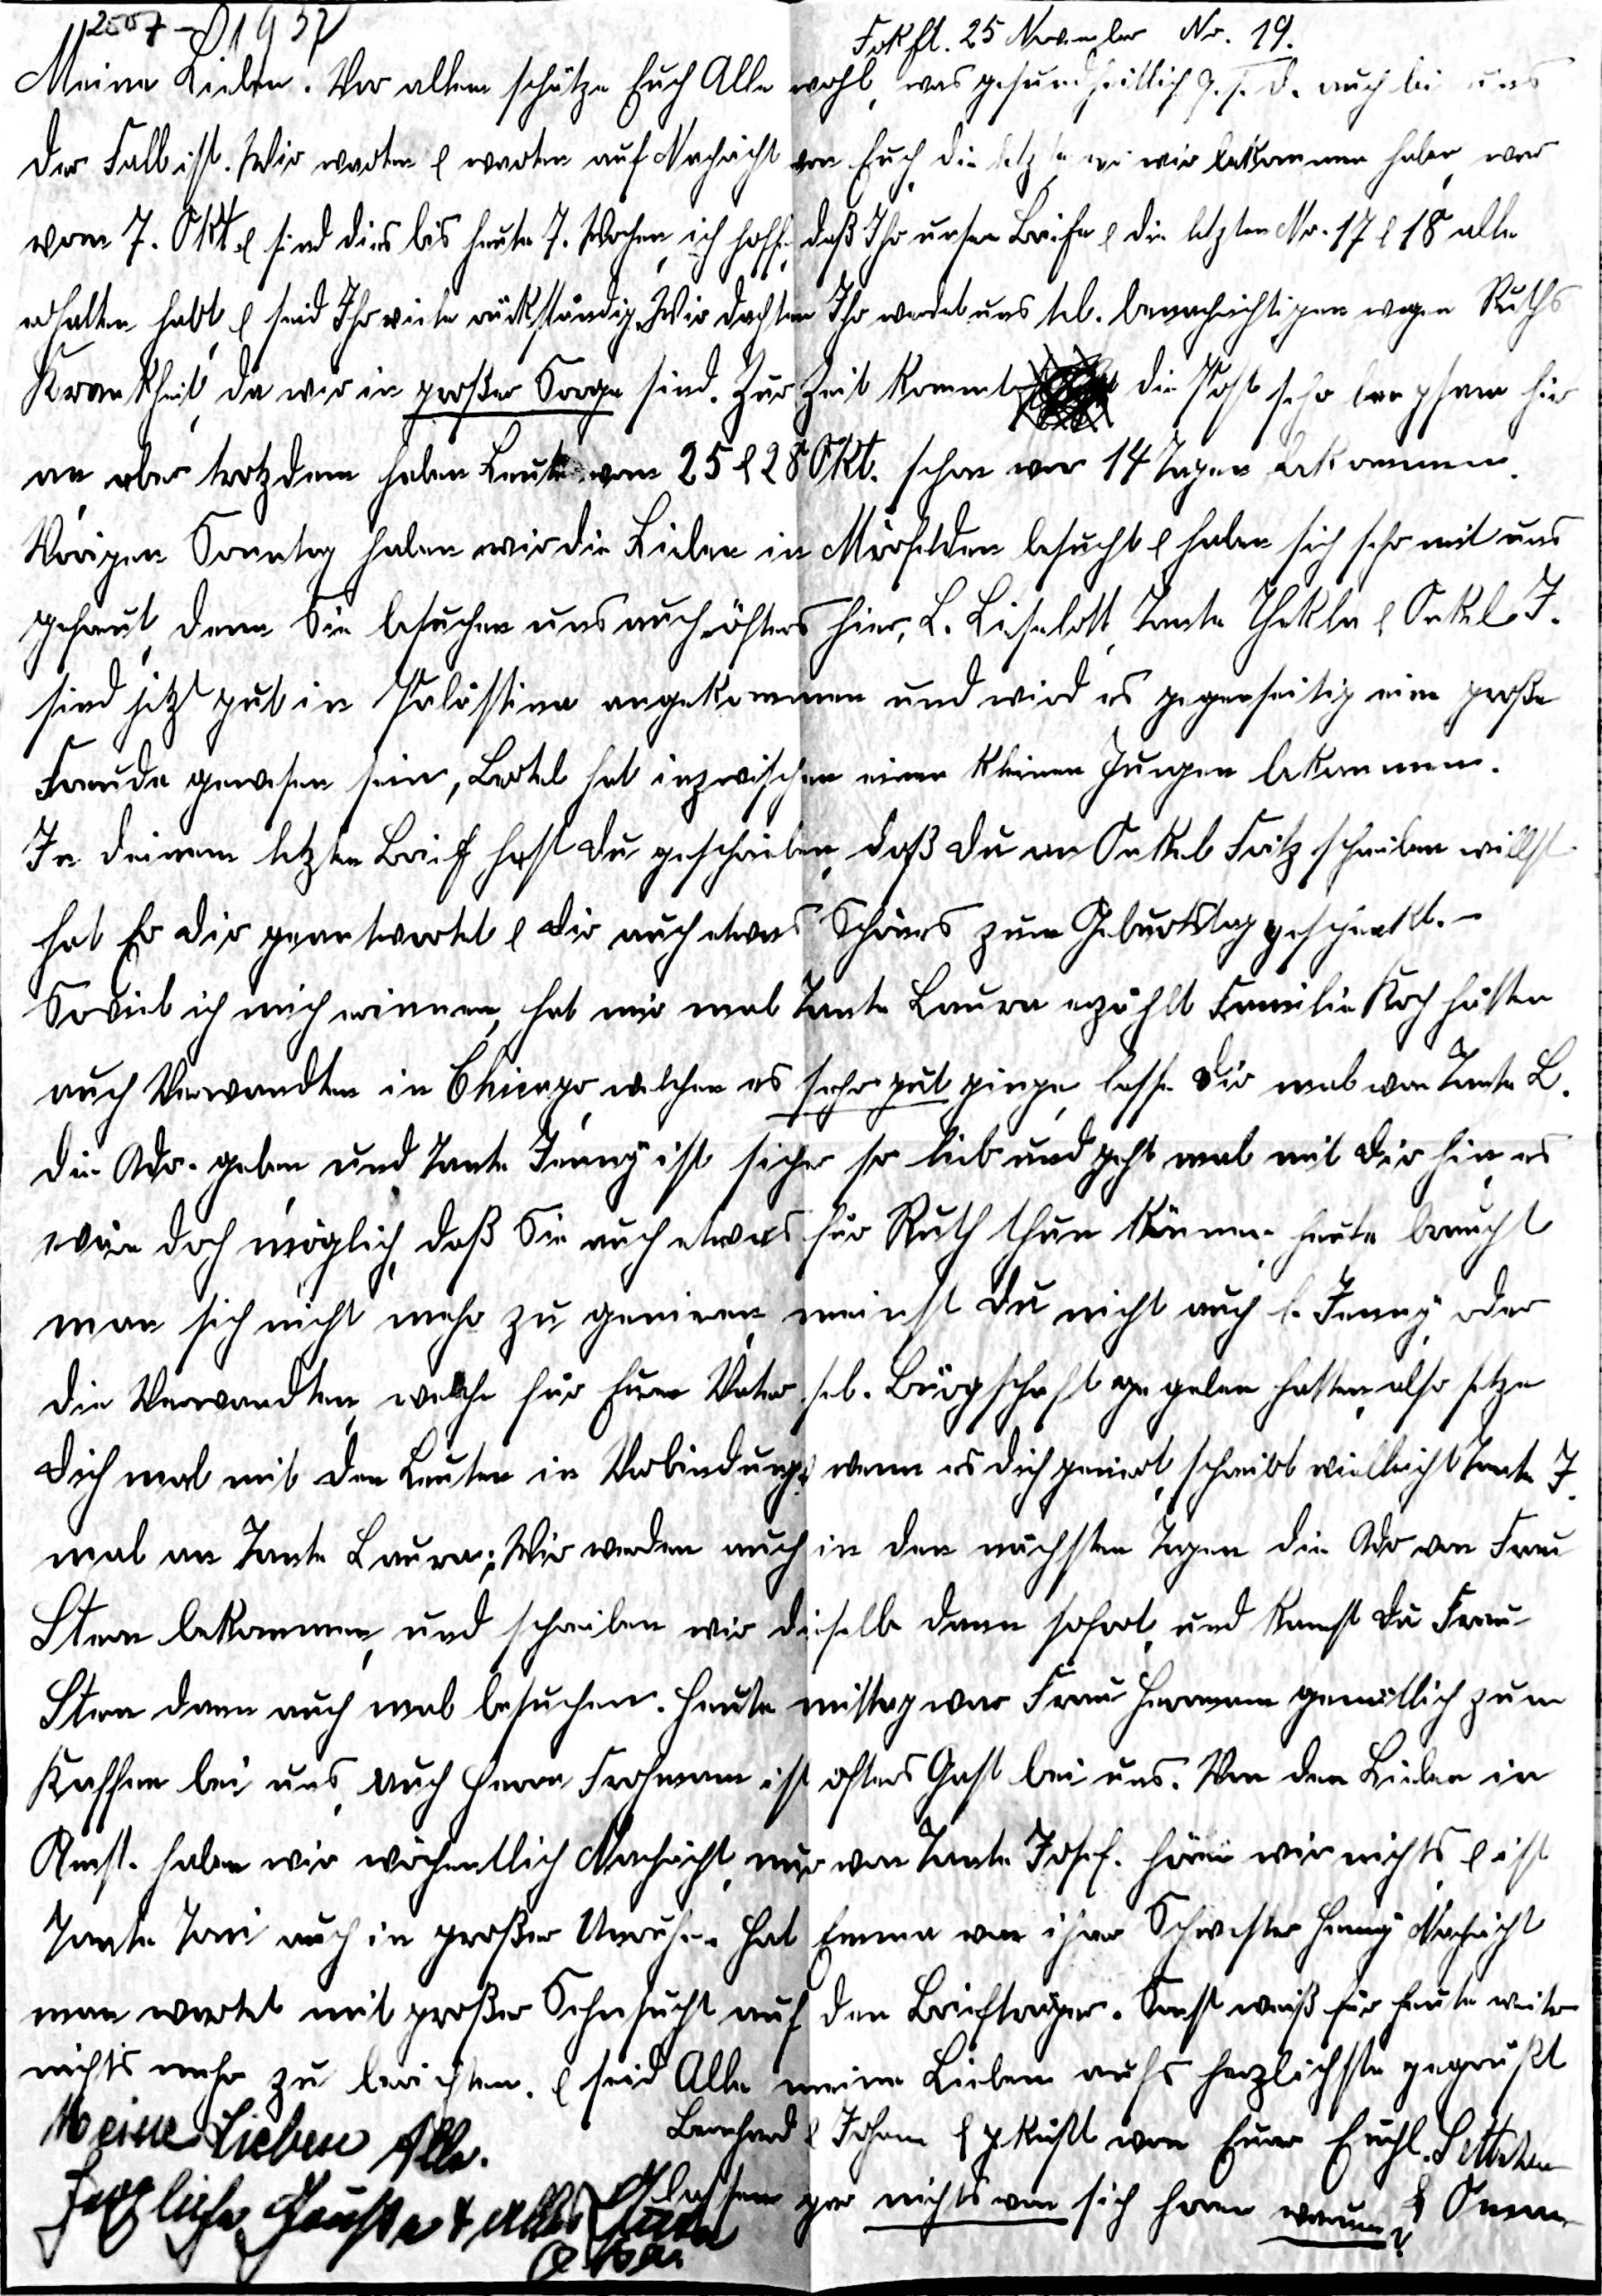 2507 - 1937
Frkft. 25 November Nr. 19.
Meine Lieben. Vor allem schätze Euch Alle wohl, was gesundheitlich G. s. d. auch bei uns
der Fall ist. Wir warten & warten auf Nachricht von Euch, die letzte wir bekommen haben, war
vom 7. Okt. & sind dies bis heute 7. Wochen, ich hoffe, daß Ihr unsere Briefe & die letzten Nr. 17 & 18 alle
erhalten habt, & seid Ihr viele rückständig. Wir dachten Ihr werdet uns tel. benachrichtigen wegen Ruths
Krankheit, da wir in großer Sorge sind. Zur Zeit kommt die Post sehr langsam hier
an, aber trotzdem haben Leute vom 25 & 28 Okt. schon vor 14 Tagen bekommen.
Vorigen Sonntag haben wir die Lieben in Mörfelden besucht & haben sich sehr mit uns
gefreut, denn Sie besuchen uns auch öfters hier, L. Lieselott, Tante Thekla & Onkel J.
sind jetzt gut in Palästina angekommen und wird es gegenseitig eine große
Freude gewesen sein, Bertel hat inzwischen einen kleinen Jungen bekommen.
In deinem letzten Brief hast Du geschrieben, daß Du an Onkel Fritz schreiben willst
hat Er Dir geantwortet & Dir auch etwas Schönes zum Geburtstag geschenkt. -
Soviel ich mich erinnere, hat mir mal Tante Laura erzählt Familie Koch hätten
auch Verwandten in Chicago, welchen es sehr gut ginge, lasse Dir mal von Tante L.
die Adr. geben und Tante Jenny ist sicher so lieb und geht mal mit Dir hin, es
wäre doch möglich, daß Sie auch etwas für Ruth thun können, heute braucht
man sich nicht mehr zu genieren, meinst Du nicht auch l. Jenny, oder
die Verwandten, welche für Euren Vater sel. Bürgschaft gegeben hatten, also setze
Dich mal mit den Leuten in Verbindung, wenn es Dich geniert, schreibt vielleicht Tante J.
mal an Tante Laura; Wir werden auch in den nächsten Tagen die Adr von Frau
Stern bekommen, und schreiben wir dieselbe dann sofort, und kannst Du Frau
Stern dann auch mal besuchen. Heute mittag war Frau Hermann gemütlich zum
Kaffee bei uns, auch Herr Frohmann ist öfters Gast bei uns. Von den Lieben in
Amst. haben wir wöchentlich Nachricht, nur von Tante Josef. hören wir nichts, & ist
Tante Toni auch in großer Unruhe. Hat Emma von ihrer Schwester Henny Nachricht
man wartet mit großer Sehnsucht auf den Briefträger. Sonst weiß für heute weiter
nichts mehr zu berichten. & seid Alle meine Lieben aufs herzlichste gegrüßt
Bernhard & Johanna & geküßt von Eurer Euchl. Settchen
Meine Lieben Alle.
lassen gar nichts von sich hören warum? & Oma
Herzliche Grüße & alles Gute
Opa